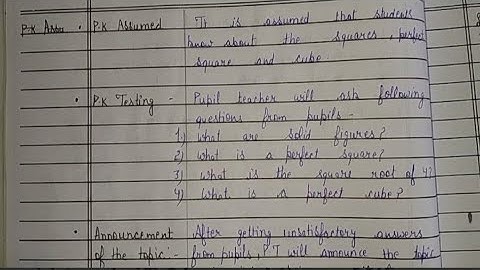 P.K Assumed It is assumed that students
know about the squares, perfect
square and cube.
P.K Testing - Pupil teacher will ask following
questions from pupils -
1) What are solid figures?
2) What is a perfect square?
3) What is the square root of 4?
4) What is a perfect cube?
Announcement After getting unsatisfactory answers
of the topic :- from pupils, P.T will announce the topic